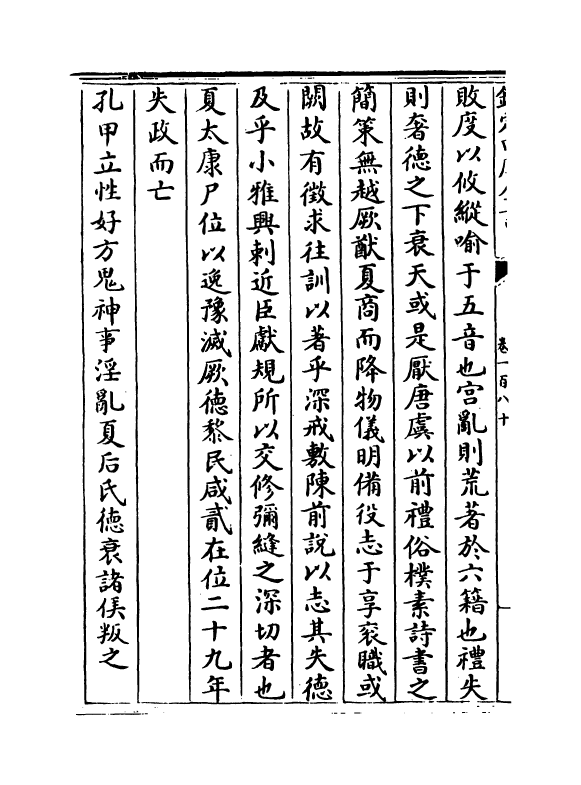 卷一百八十
敗度以攸縱喻于五音也宫亂則荒著於六籍也禮失
則奢德之下衰天或是厭唐虞以前禮俗樸素詩書之
簡策無越厥猷夏商而降物儀明備役志于享衮職或
闕故有徵求往訓以著乎深戒敷陳前說以志其失德
及乎小雅興刺近臣獻規所以交修彌縫之深切者也
夏太康尸位以逸豫滅厥德黎民咸貳在位二十九年
失政而亡
孔甲立性好方鬼神事淫亂夏后氏德衰諸侯叛之